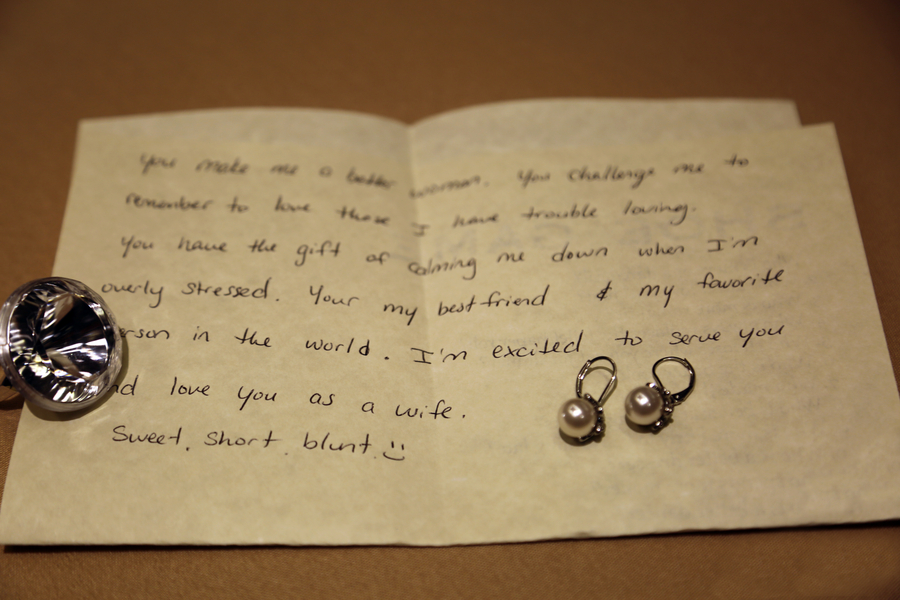 You make me a better woman. You challenge me to
remember to love those I have trouble loving.
You have the gift of calming me down when I'm
overly stressed. Your my best friend & my favorite
erson in the world. I'm excited to serve you
nd love you as a wife.
Sweet. Short. blunt. :)